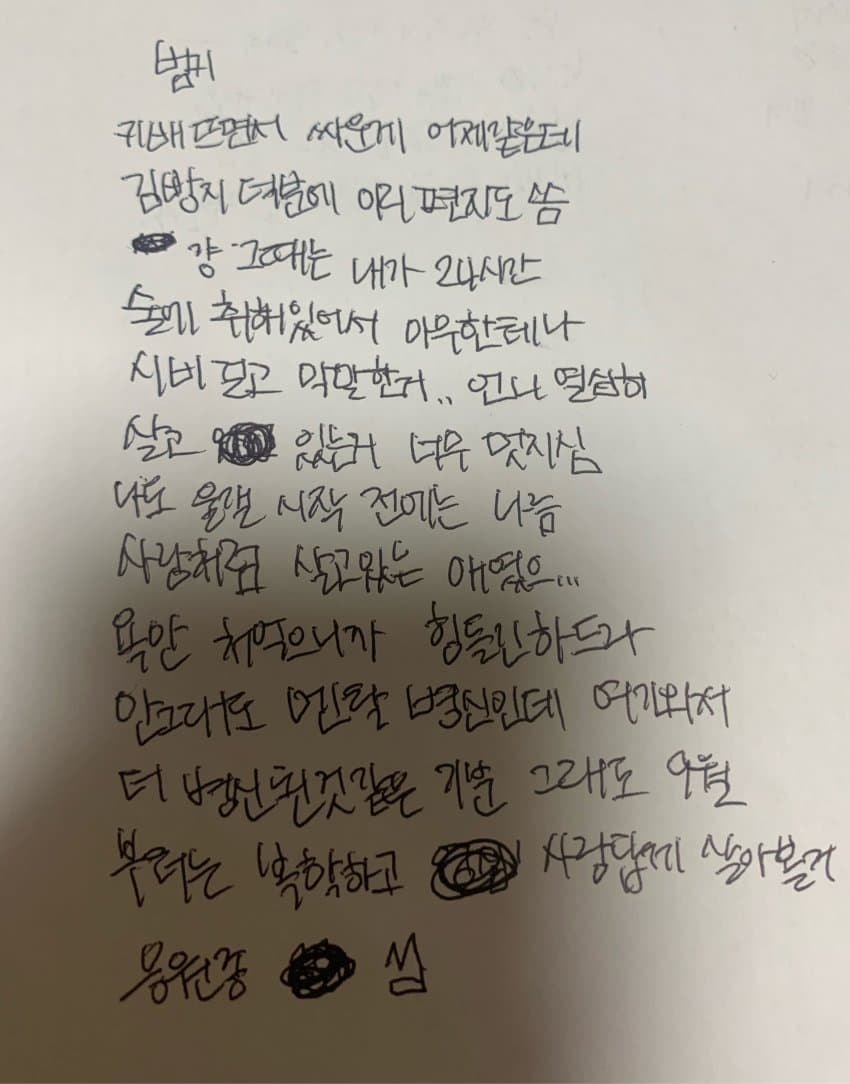 범기
귀배뜨면서 싸운게 어제같은데
김방지 덕분에 이런 편지도 씀
걍 그때는 내가 24시간
술에 취해있어서 아무한테나
시비 걸고 막말한거.. 언니 열심히
살고 있는거 너무 멋지심
나도 올갤 시작 전에는 나름
사람처럼 살고있는 애였으...
욕만 처먹으니까 힝들긴하드라
안그래도 멘탈 병신인데 여기와서
더 병신된것같은 기분 그래도 9월
부터는 복학하고 사람답게 살아볼거
응원좀